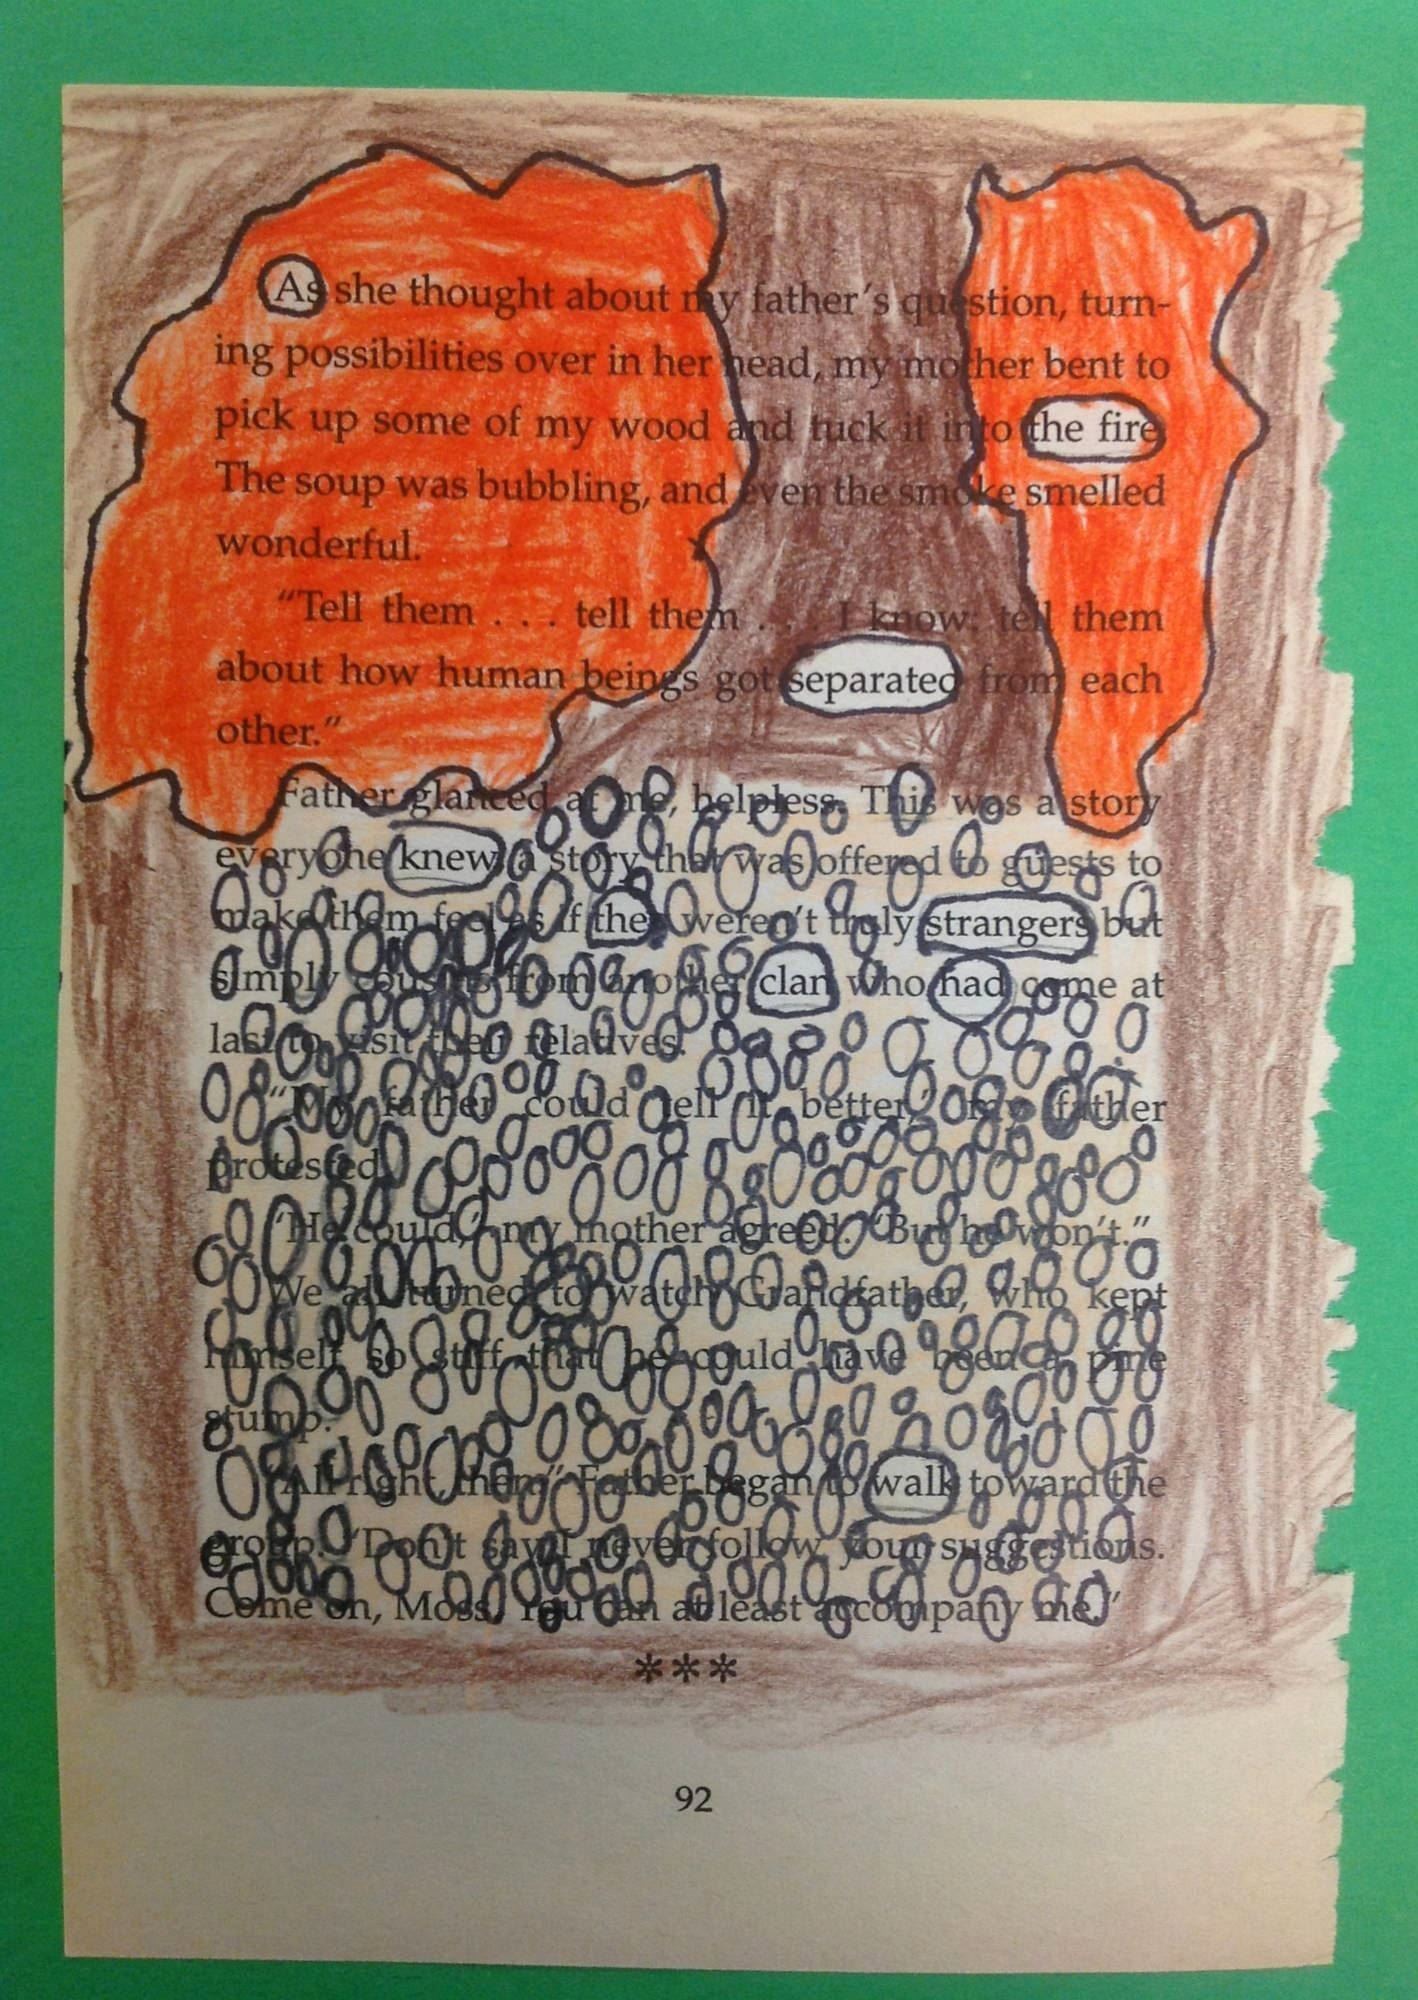 As she thought about my father's question, turn-
ing possibilities over in her head, my mother bent to
pick up some of my wood and tuck it into the fire
The soup was bubbling, and even the smoke smelled
wonderful.
"Tell them . . . tell them . . . I know: tell them
about how human beings got separated from each
other."
Father glanced at me, helpless. This was a story
everyone knew, a story that was offered to guests to
make them feel as if they weren't truly strangers but
simply cousins from another clan who had come at
last to visit their relatives.
"My father could tell it better," my father
protested.
"He could," my mother agreed. "But he won't."
We all turned to watch Grandfather, who kept
himself so stiff that he could have been a pine
stump.
"All right, then." Father began to walk toward the
group. "Don't say I never follow your suggestions.
Come on, Moss. You can at least accompany me."
***
92